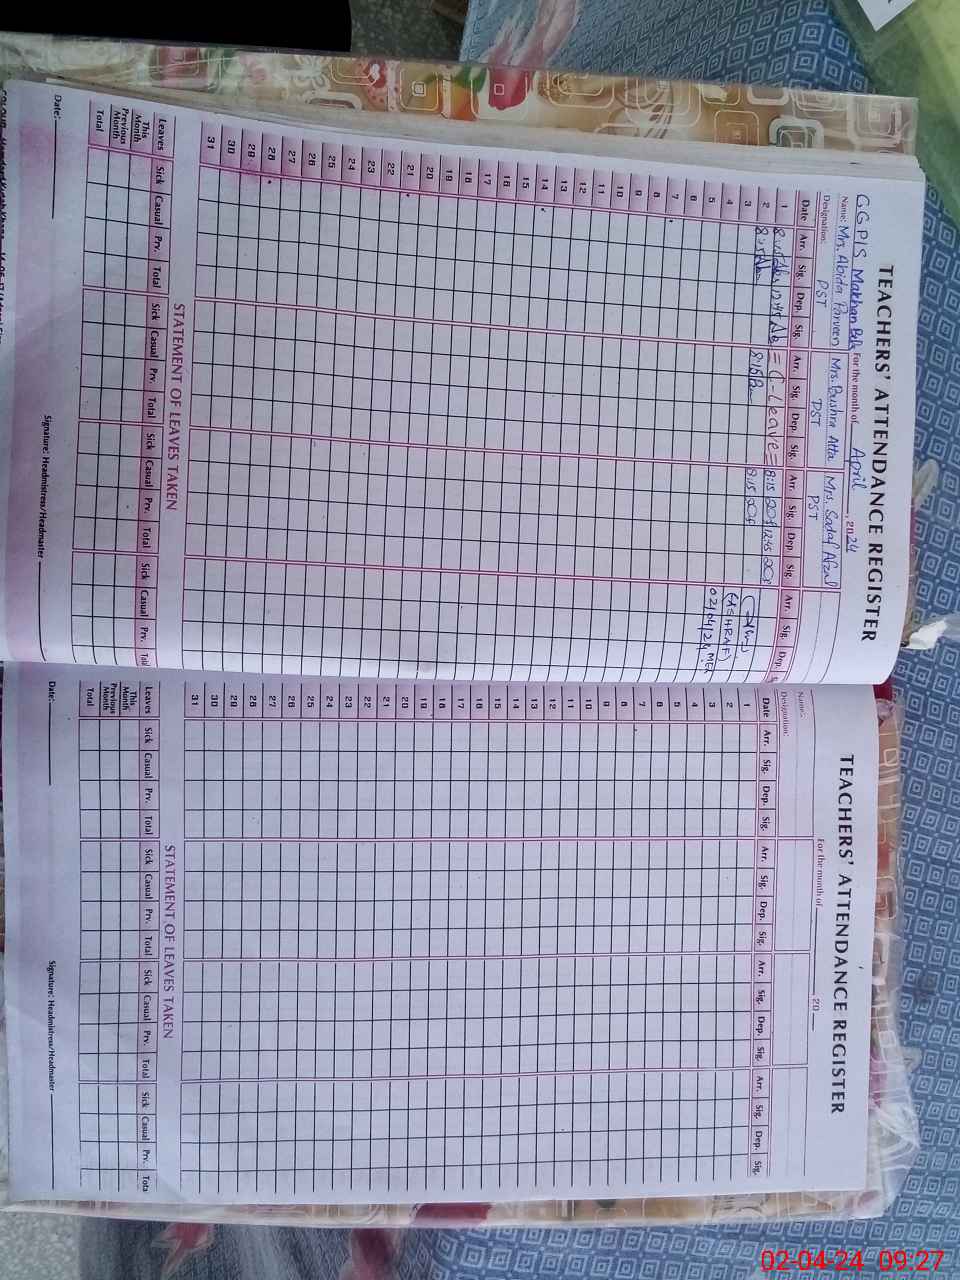 TEACHERS' ATTENDANCE REGISTER
GGPIS Makhan Bela For the month of April, 2024
Name: Mrs. Abida Parveen Mrs. Bushra Atta Mrs. Sadaf Afzal
Designation: PST PST PST
Date Arr. Sig. Dep. Sig. Arr. Sig. Dep. Sig. Arr. Sig. Dep. Sig. Arr. Sig. Dep.
1 8:15 12:45 = C-Leave = 8:15 12:45
2 8:15 8:15 8:15
3
4 (ASHRAF)
5 02/04/24
6
7
8
9
10
11
12
13
14
15
16
17
18
19
20
21
22
23
24
25
26
27
28
29
30
31
STATEMENT OF LEAVES TAKEN
Leaves Sick Casual Prv. Total Sick Casual Prv. Total Sick Casual Prv. Total Sick Casual Prv.
This Month
Previous Month
Total
Date: Signature: Headmistress/Headmaster
TEACHERS' ATTENDANCE REGISTER
For the month of 20
Name:
Designation:
Date Arr. Sig. Dep. Sig. Arr. Sig. Dep. Sig. Arr. Sig. Dep. Sig. Arr. Sig. Dep. Sig.
1
2
3
4
5
6
7
8
9
10
11
12
13
14
15
16
17
18
19
20
21
22
23
24
25
26
27
28
29
30
31
STATEMENT OF LEAVES TAKEN
Leaves Sick Casual Prv. Total Sick Casual Prv. Total Sick Casual Prv. Total Sick Casual Prv. Tota
This Month
Previous Month
Total
Date: Signature: Headmistress/Headmaster
02-04-24 09:27